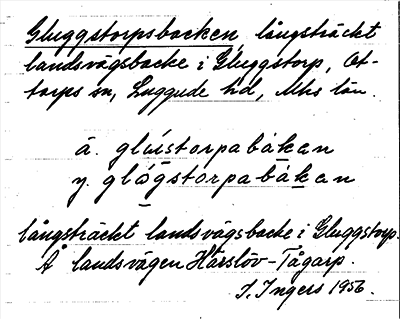 Gluggstorpsbacken, långsträckt
landsvägsbacke i Gluggstorp, Ot-
torps sn, Luggude hd, Mhs län.
ä. glúistorpabákan
y. glógstorpabákan
långsträckt landsvägsbacke i Gluggstorp.
Å landsvägen Härslöv-Tågarp.
I. Ingers 1956.